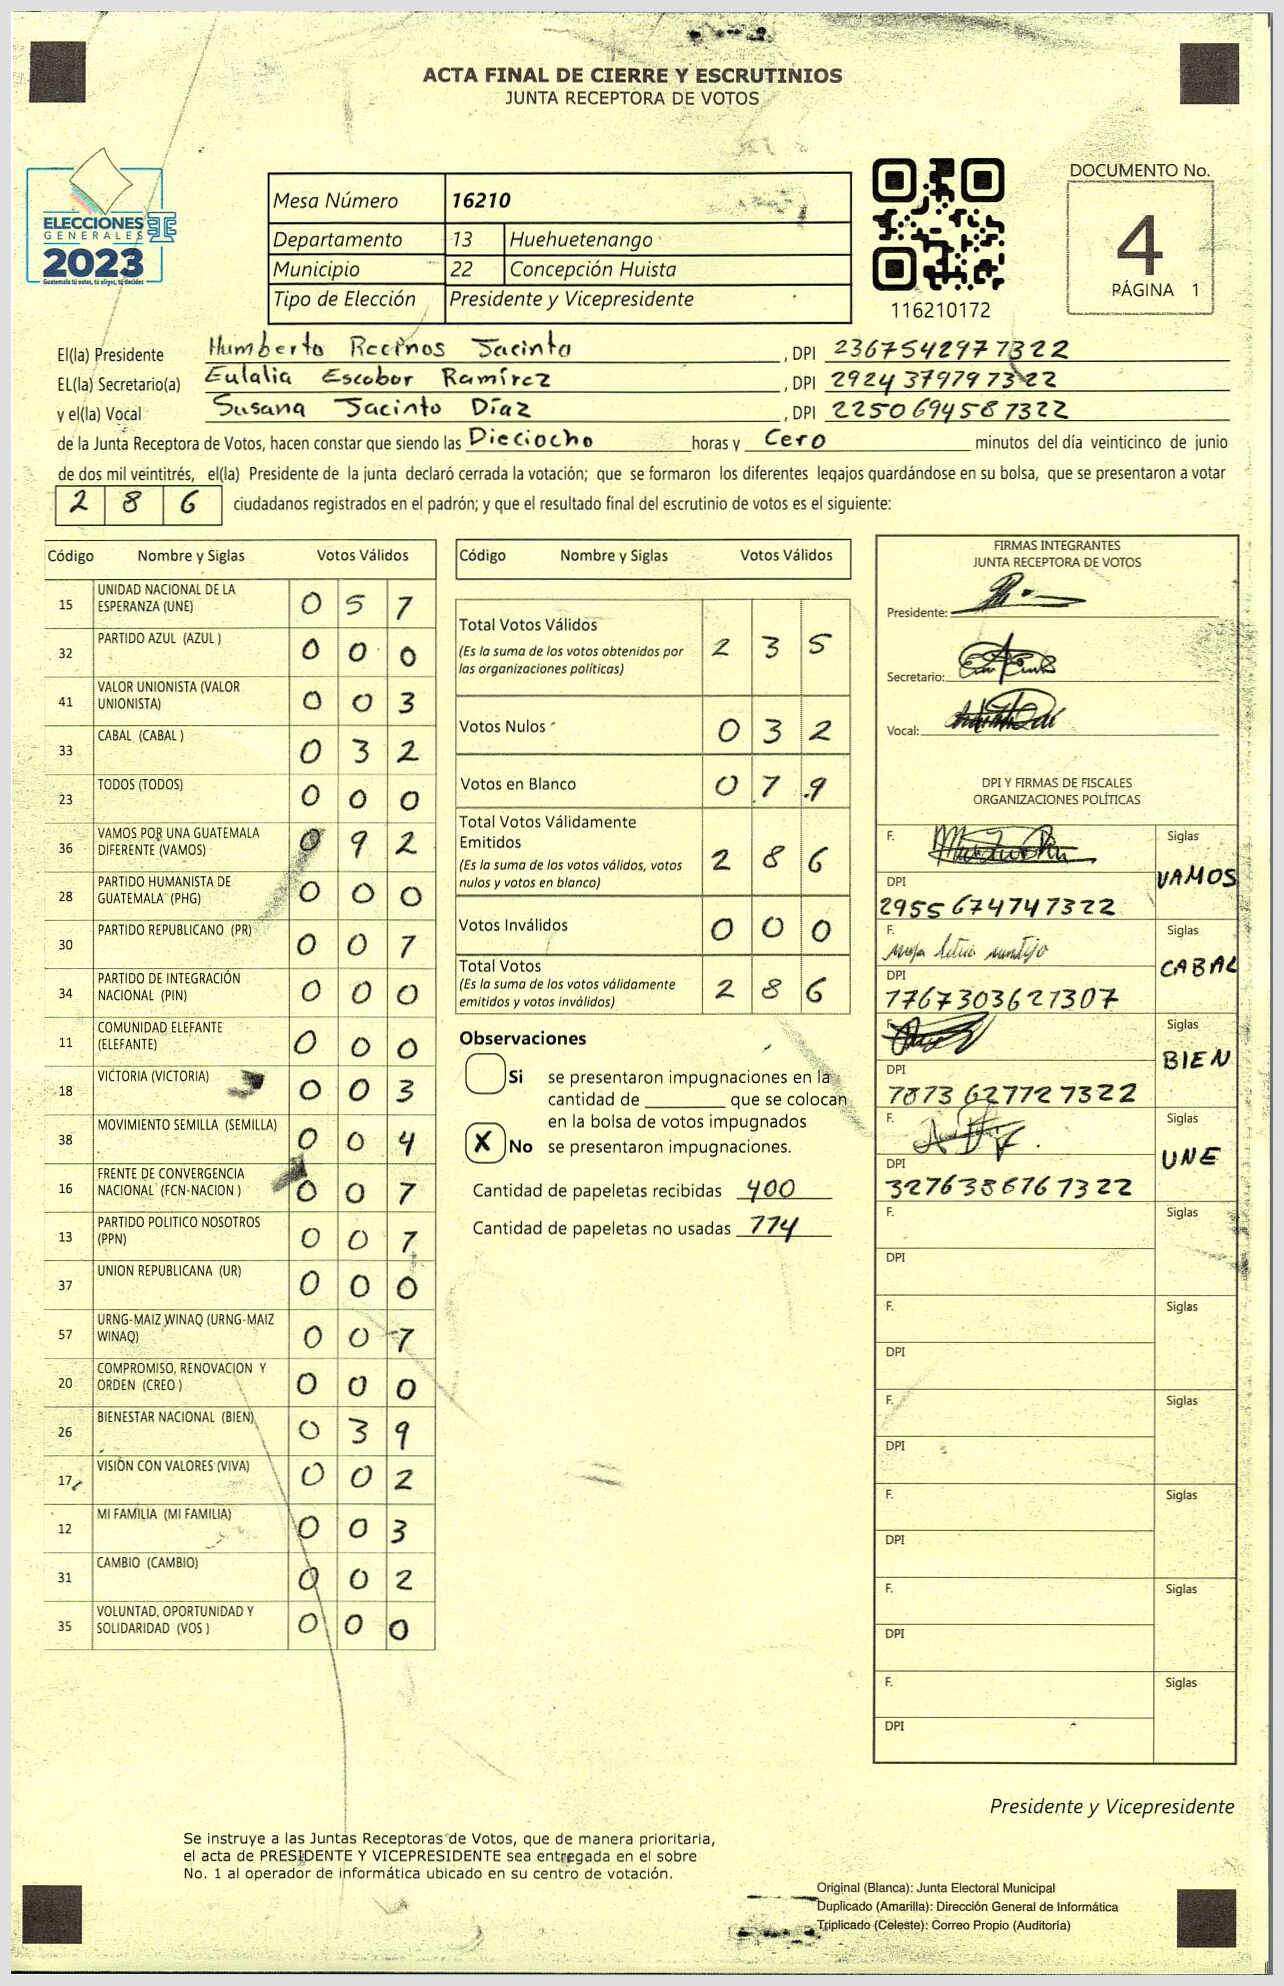 ACTA FINAL DE CIERRE Y ESCRUTINIOS
JUNTA RECEPTORA DE VOTOS
ELECCIONES
GENERALES
2023
Guatemala tú votas, tú eliges, tú decides
Mesa Número 16210
Departamento 13 Huehuetenango
Municipio 22 Concepción Huista
Tipo de Elección Presidente y Vicepresidente
116210172
DOCUMENTO No.
4
PÁGINA 1
El(la) Presidente Humberto Recinos Jacinto , DPI 2367542971322
EL(la) Secretario(a) Eulalia Escobar Ramírez , DPI 2924379791322
y el(la) Vocal Susana Jacinto Díaz , DPI 2250694581322
de la Junta Receptora de Votos, hacen constar que siendo las Dieciocho horas y Cero minutos del día veinticinco de junio
de dos mil veintitrés, el(la) Presidente de la junta declaró cerrada la votación; que se formaron los diferentes legajos guardándose en su bolsa, que se presentaron a votar
2 8 6 ciudadanos registrados en el padrón; y que el resultado final del escrutinio de votos es el siguiente:
Código Nombre y Siglas Votos Válidos
15 UNIDAD NACIONAL DE LA ESPERANZA (UNE) 0 5 1
32 PARTIDO AZUL (AZUL ) 0 0 0
41 VALOR UNIONISTA (VALOR UNIONISTA) 0 0 3
33 CABAL (CABAL ) 0 3 2
23 TODOS (TODOS) 0 0 0
36 VAMOS POR UNA GUATEMALA DIFERENTE (VAMOS) 0 9 2
28 PARTIDO HUMANISTA DE GUATEMALA (PHG) 0 0 0
30 PARTIDO REPUBLICANO (PR) 0 0 1
34 PARTIDO DE INTEGRACIÓN NACIONAL (PIN) 0 0 0
11 COMUNIDAD ELEFANTE (ELEFANTE) 0 0 0
18 VICTORIA (VICTORIA) 0 0 3
38 MOVIMIENTO SEMILLA (SEMILLA) 0 0 4
16 FRENTE DE CONVERGENCIA NACIONAL (FCN-NACION ) 0 0 1
13 PARTIDO POLITICO NOSOTROS (PPN) 0 0 1
37 UNION REPUBLICANA (UR) 0 0 0
57 URNG-MAIZ WINAQ (URNG-MAIZ WINAQ) 0 0 1
20 COMPROMISO, RENOVACION Y ORDEN (CREO ) 0 0 0
26 BIENESTAR NACIONAL (BIEN) 0 3 9
17 VISION CON VALORES (VIVA) 0 0 2
12 MI FAMILIA (MI FAMILIA) 0 0 3
31 CAMBIO (CAMBIO) 0 0 2
35 VOLUNTAD, OPORTUNIDAD Y SOLIDARIDAD (VOS ) 0 0 0
Código Nombre y Siglas Votos Válidos
Total Votos Válidos 2 3 5
(Es la suma de los votos obtenidos por
las organizaciones políticas)
Votos Nulos 0 3 2
Votos en Blanco 0 1 9
Total Votos Válidamente
Emitidos 2 8 6
(Es la suma de los votos válidos, votos
nulos y votos en blanco)
Votos Inválidos 0 0 0
Total Votos 2 8 6
(Es la suma de los votos válidamente
emitidos y votos inválidos)
Observaciones
Si se presentaron impugnaciones en la
cantidad de ________ que se colocan
en la bolsa de votos impugnados
X No se presentaron impugnaciones.
Cantidad de papeletas recibidas 400
Cantidad de papeletas no usadas 114
FIRMAS INTEGRANTES
JUNTA RECEPTORA DE VOTOS
Presidente:
Secretario:
Vocal:
DPI Y FIRMAS DE FISCALES
ORGANIZACIONES POLÍTICAS
F. Siglas
VAMOS
DPI
2955674741322
F. Siglas
CABAL
DPI
1767303621307
F. Siglas
BIEN
DPI
F. Siglas
UNE
DPI
3276386161322
F. Siglas
DPI
F. Siglas
DPI
F. Siglas
DPI
F. Siglas
DPI
F. Siglas
DPI
F. Siglas
DPI
Presidente y Vicepresidente
Se instruye a las Juntas Receptoras de Votos, que de manera prioritaria,
el acta de PRESIDENTE Y VICEPRESIDENTE sea entregada en el sobre
No. 1 al operador de informática ubicado en su centro de votación.
Original (Blanca): Junta Electoral Municipal
Duplicado (Amarilla): Dirección General de Informática
Triplicado (Celeste): Correo Propio (Auditoría)